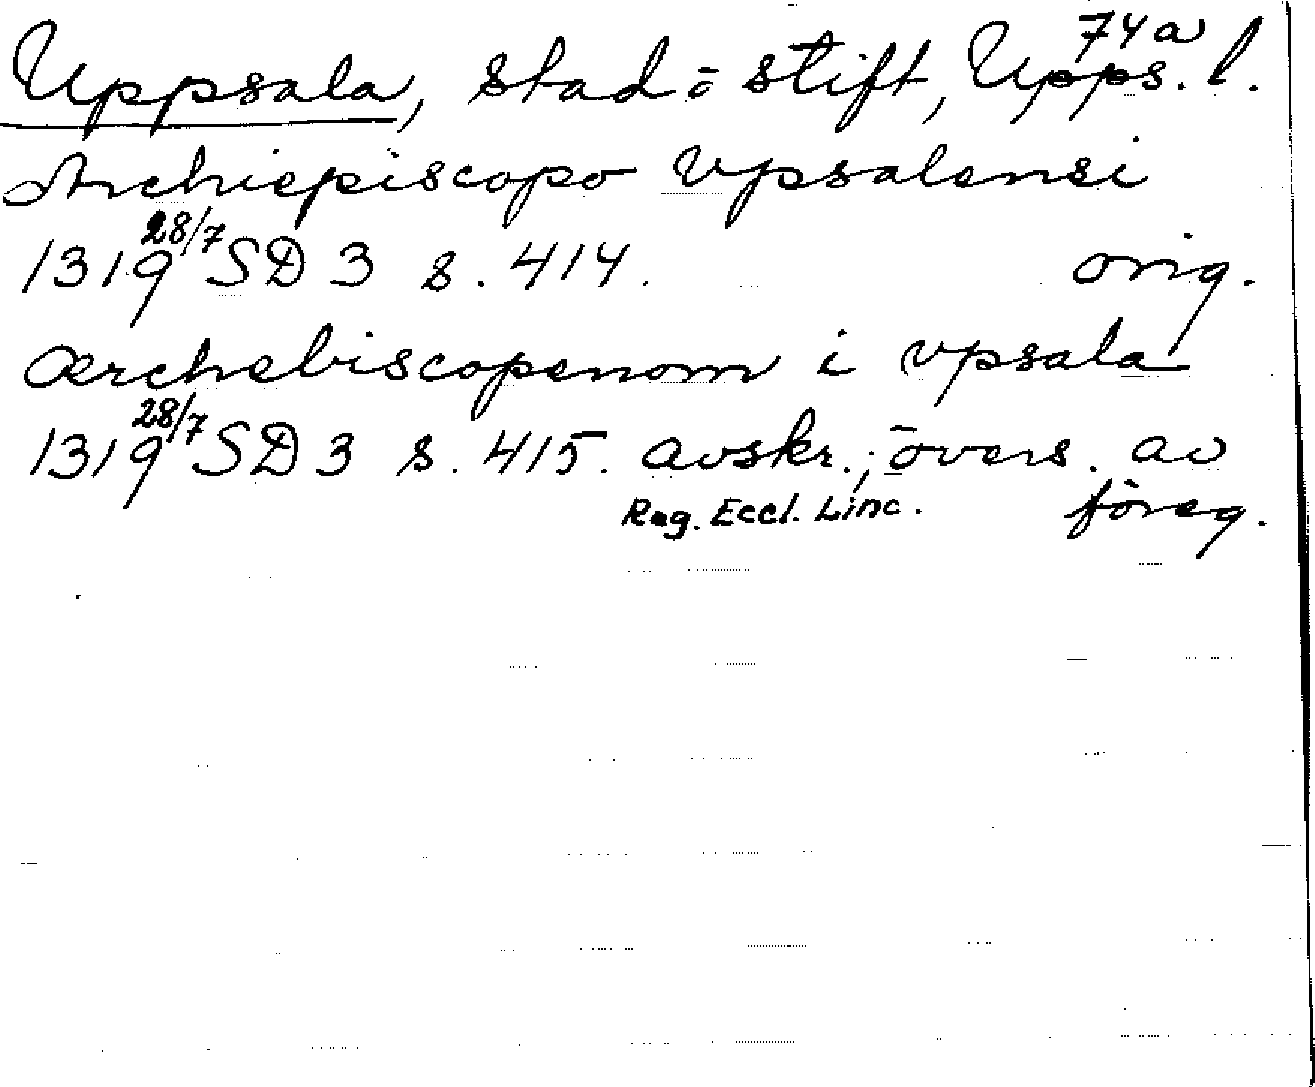 74a
Uppsala, stad ō stift, Upps. l.
Archiepiscopo Vpsalensi
1319 28/7 SD 3 s. 414. orig.
ærchebiscopenom i vpsala
1319 28/7 SD 3 s. 415. avskr.; övers. av
Reg. Eccl. Linc. föreg.